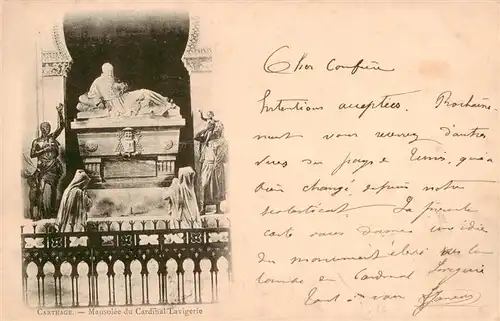 Cher Confrère
Intentions acceptées. Prochaine-
ment vous recevrez d'autres
vues du pays de Tunis, qui a
bien changé depuis notre
scolasticat. La présente
carte vous donne une idée
du monument élevé sur la
tombe du Cardinal Lavigerie
Tout à vous
CARTHAGE. — Mausolée du Cardinal Lavigerie